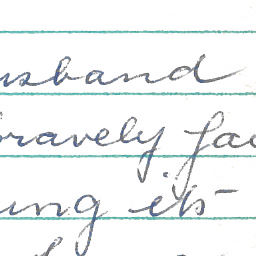 usband
bravely fac
ung its